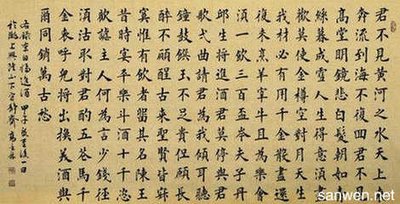 君不見黄河之水天上来
奔流到海不復回君不見
高堂明鏡悲白髮朝如青
絲暮成雪人生得意須盡
歡莫使金樽空對月天生
我材必有用千金散盡還
復来烹羊宰牛且為樂會
須一飲三百杯岑夫子丹
邱生将進酒君莫停與君
歌弌曲請君為我傾耳聽
鐘鼓饌玉不足貴但願長
醉不願醒古来聖賢皆寂
寞惟有飲者留其名陳王
昔時宴平樂斗酒十千恣
歡謔主人何為言少錢徑
須沽取對君酌五花馬千
金裘呼兒将出換美酒與
爾同銷萬古愁
右錄李白将進酒 甲子
sanwen.net